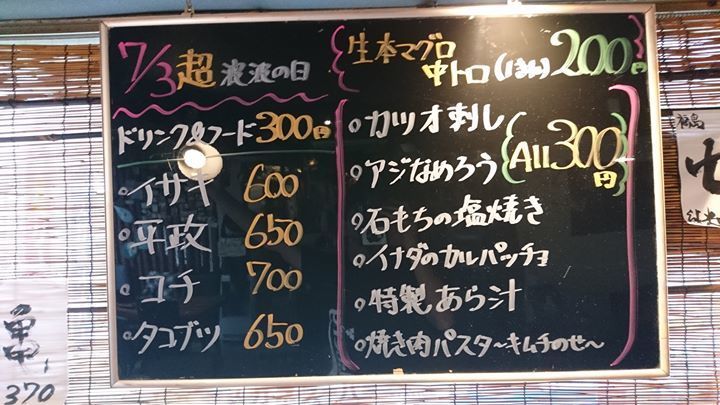 7/3 超 波波の日
ドリンク&フード 300円
・イサキ 600
・平政 650
・コチ 700
・タコブツ 650
生本マグロ
中トロ(1本) 200円
・カツオ刺し
・アジなめろう
・石もちの塩焼き
・イナダのカルパッチョ
・特製あら汁
・焼き肉パスタ~キムチのせ~
All 300円
福島
370